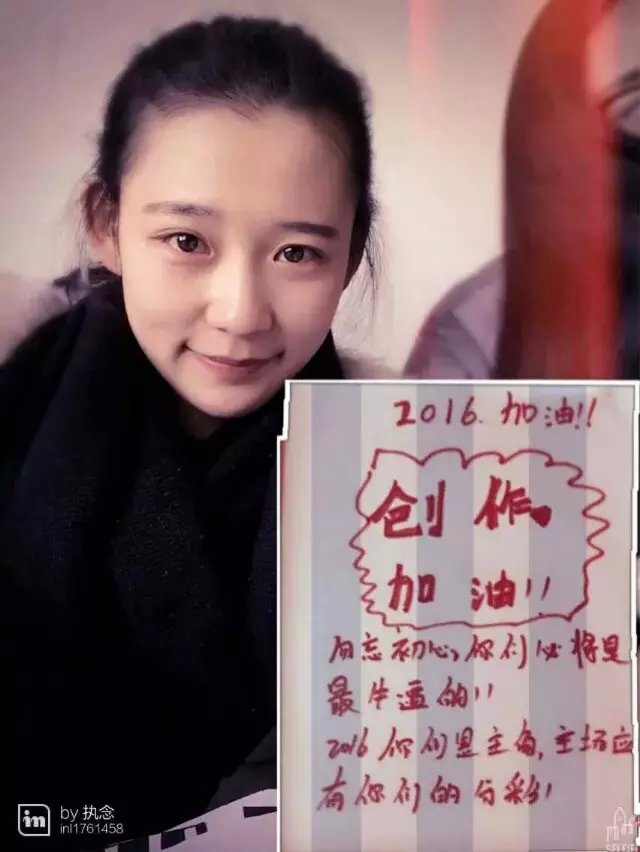 2016.加油!!
创作
加油!!
勿忘初心,你们必将是
最牛逼的!!
2016你们是主角,主场应
有你们的
by 执念
in
inl1761458
SELFIE